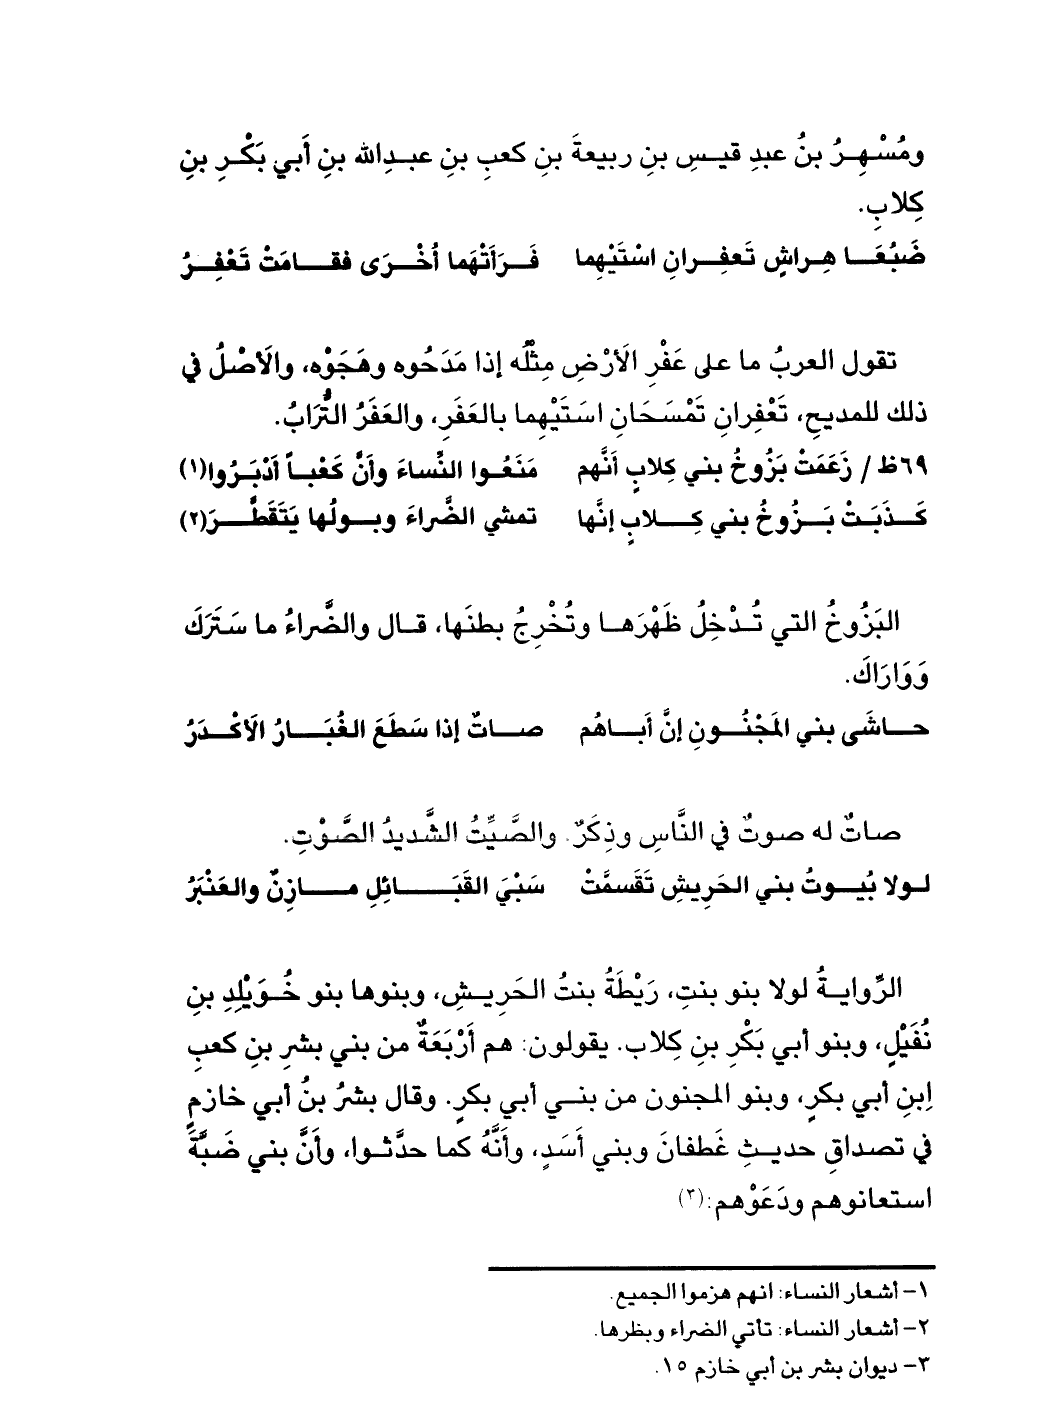 ومُسْهِرُ بنُ عبدِ قيسِ بنِ ربيعةَ بنِ كعبِ بنِ عبدِالله بنِ أَبي بَكْرِ بنِ
كِلابِ.
ضَبُعَا هِراشٍ تَعفِرانِ اسْتَيْهِما فَرَأَتْهَما أُخْرَى فقامَتْ تَعْفِرُ
تقول العربُ ما على عَفْرِ الأَرْضِ مِثْلُه إذا مَدَحُوه وهَجَوْه، والأَصْلُ في
ذلك للمديحِ، تَعْفِرانِ تَمْسَحَانِ اسَتَيْهِما بالعَفَرِ، والعَفَرُ التُّرَابُ.
٦٩ظ / زَعَمَتْ بَزُوخُ بني كِلابٍ أنَّهم مَنَعُوا النِّساءَ وأنَّ كَعْباً أدْبَرُوا(١)
كَذَبَتْ بَزُوخُ بني كِلابٍ إنَّها تمشي الضَّراءَ وبولُها يَتَقَطَّرَ(٢)
البَزُوخُ التي تُدْخِلُ ظَهْرَها وتُخْرِجُ بطنَها، قال والضَّراءُ ما سَتَرَكَ
وَوَارَاكَ.
حاشَى بني المَجْنُونِ إنَّ أَباهُم صاتٌ إذا سَطَعَ الغُبَارُ الأَكْدَرُ
صاتٌ له صوتٌ في النَّاسِ وذِكَرٌ. والصَّيِّتُ الشَّديدُ الصَّوْتِ.
لولا بُيوتُ بني الحَرِيشِ تَقَسمَّتْ سَبْيَ القَبَائِلِ مازِنٌ والعَنْبَرُ
الرِّوايةُ لولا بنو بنتِ، رَيْطَةُ بنتُ الحَرِيشِ، وبنوها بنو خُوَيْلِدِ بنِ
نُفَيْلٍ، وبنو أبي بَكْرِ بنِ كِلاب. يقولون: هم أَرْبَعَةٌ من بني بشرِ بنِ كعبِ
اِبنِ أبي بكرٍ، وبنو المجنون من بني أبي بكرٍ. وقال بشرُ بنُ أبي خازمٍ
في تصداقِ حديثِ غَطفانَ وبني أَسَدٍ، وأنَّهُ كما حدَّثوا، وأنَّ بني ضَبَّةَ
استعانوهم ودَعَوْهم:(٣)
١– أشعار النساء: انهم هزموا الجميع.
٢– أشعار النساء: تأتي الضراء وبظرها.
٣– ديوان بشر بن أبي خازم ١٥.